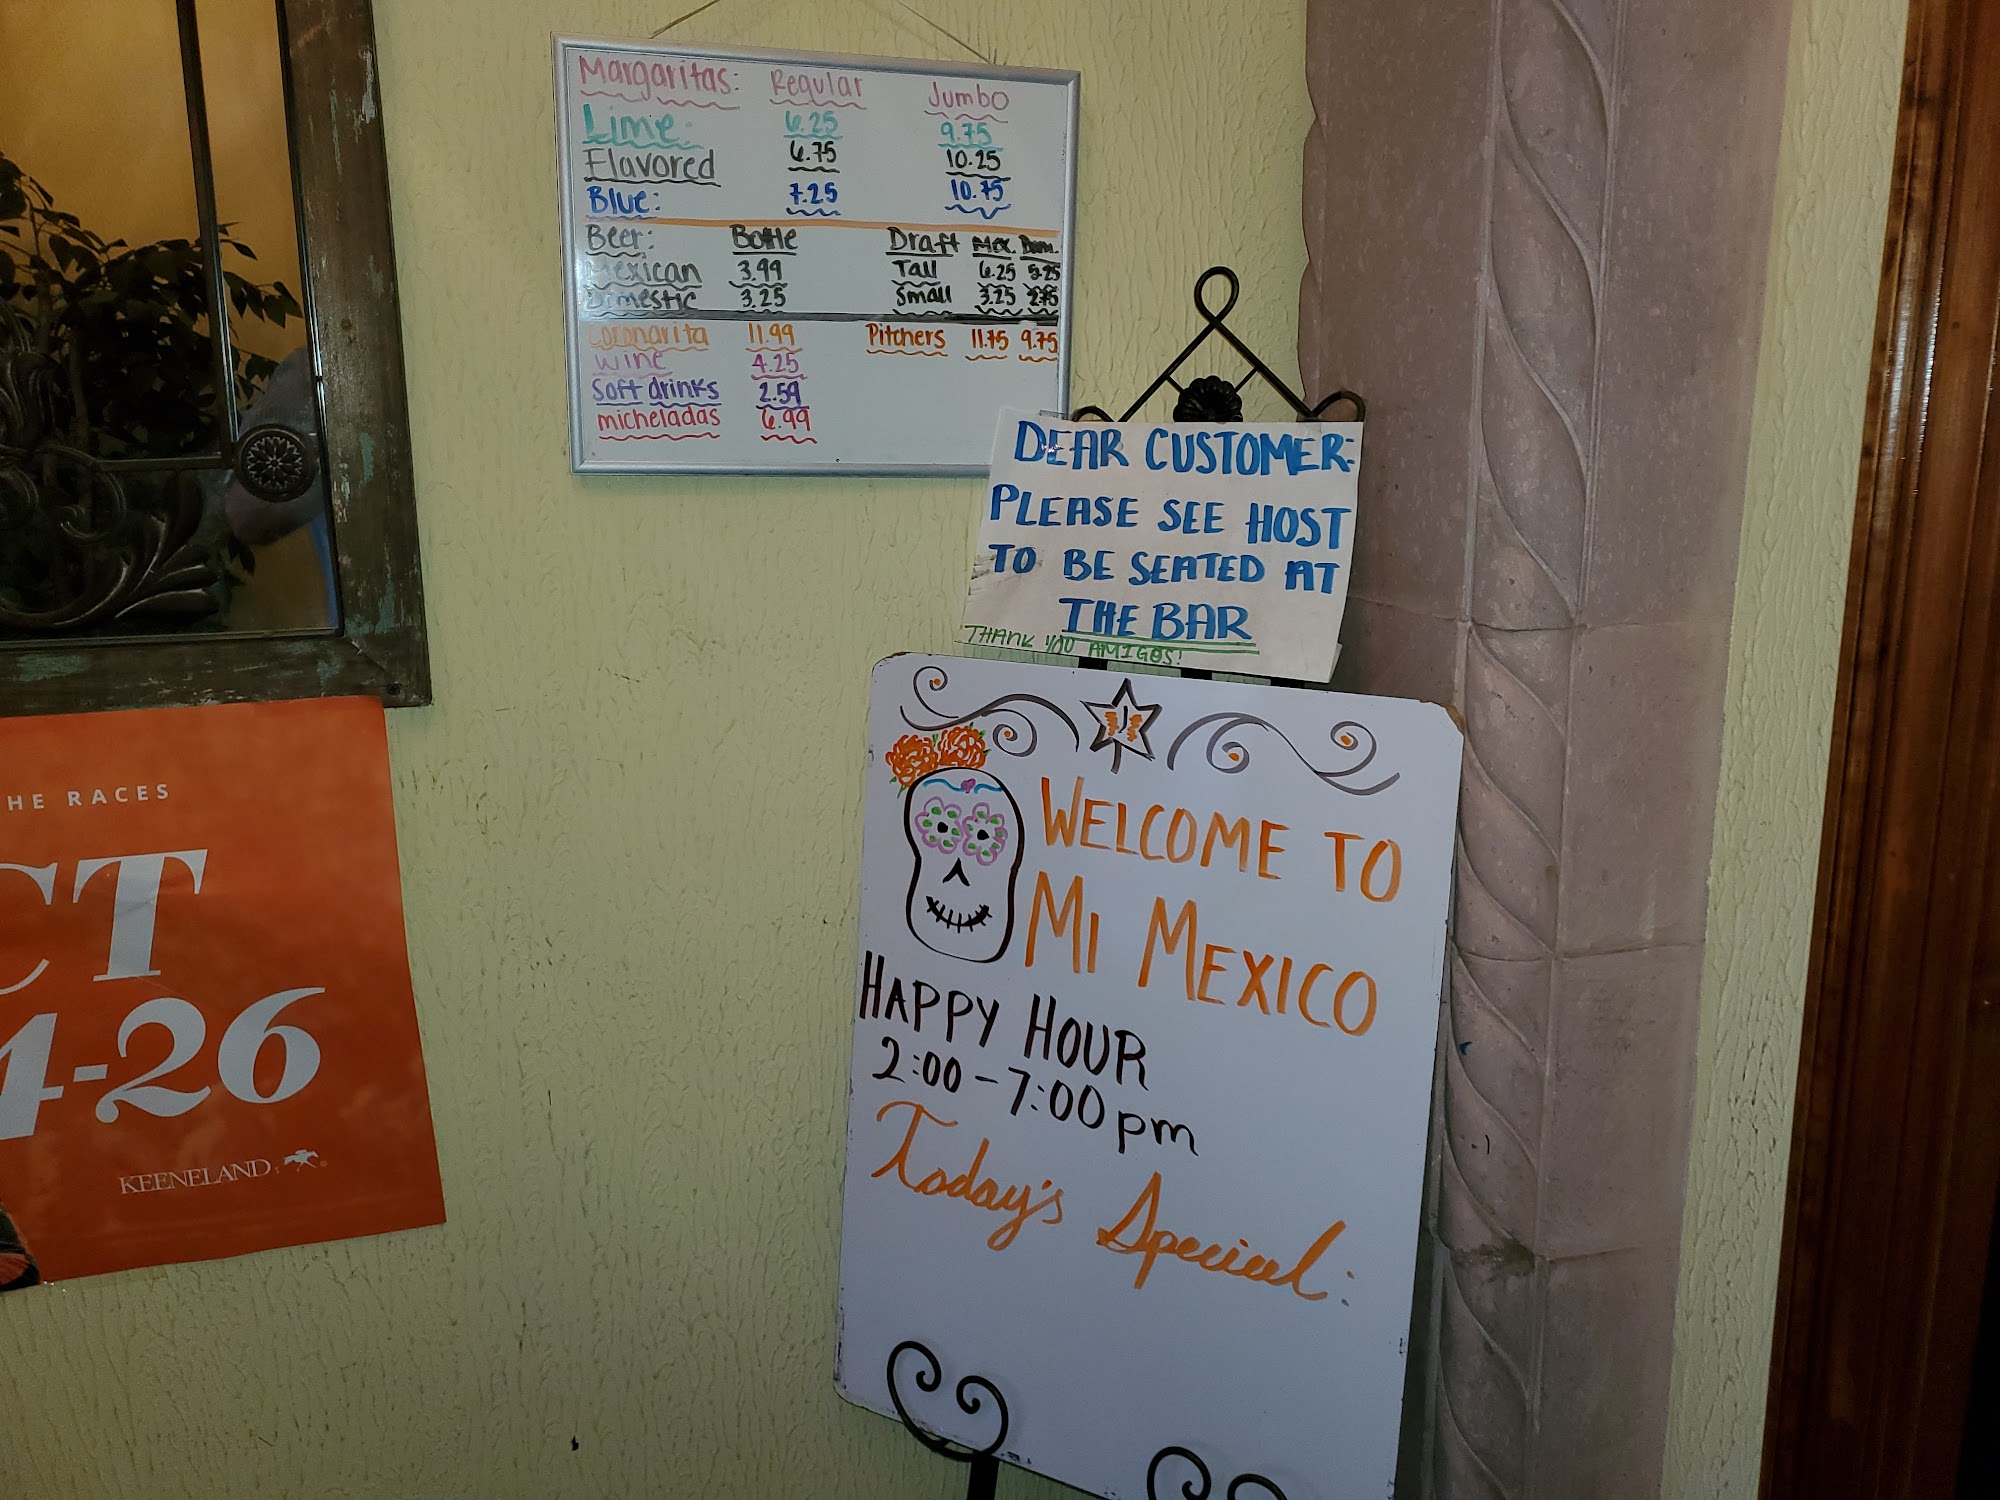 Margaritas: Regular Jumbo
Lime: 6.25 9.75
Flavored 6.75 10.25
Blue: 7.25 10.75
Beer: Bottle Draft Mex. Dom.
Mexican 3.99 Tall 6.25 5.25
Domestic 3.25 Small 3.25 2.75
Coronarita 11.99 Pitchers 11.75 9.75
Wine 4.25
Soft drinks 2.59
micheladas 6.99
DEAR CUSTOMER:
PLEASE SEE HOST
TO BE SEATED AT
THE BAR
THANK YOU AMIGOS!
WELCOME TO
MI MEXICO
HAPPY HOUR
2:00-7:00pm
Today's Special:
HE RACES
CT
4-26
KEENELAND